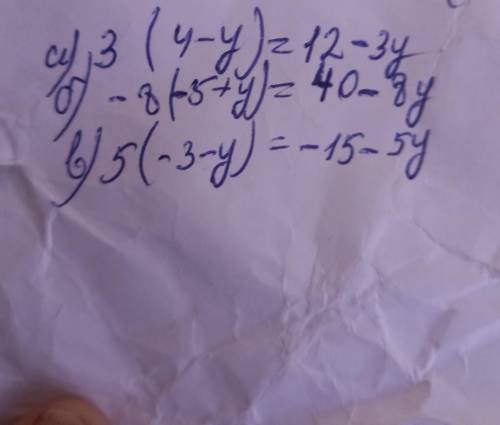 а) 3 (4-y)=12-3y
б) -8(-5+y)=40-8y
в) 5(-3-y)=-15-5y